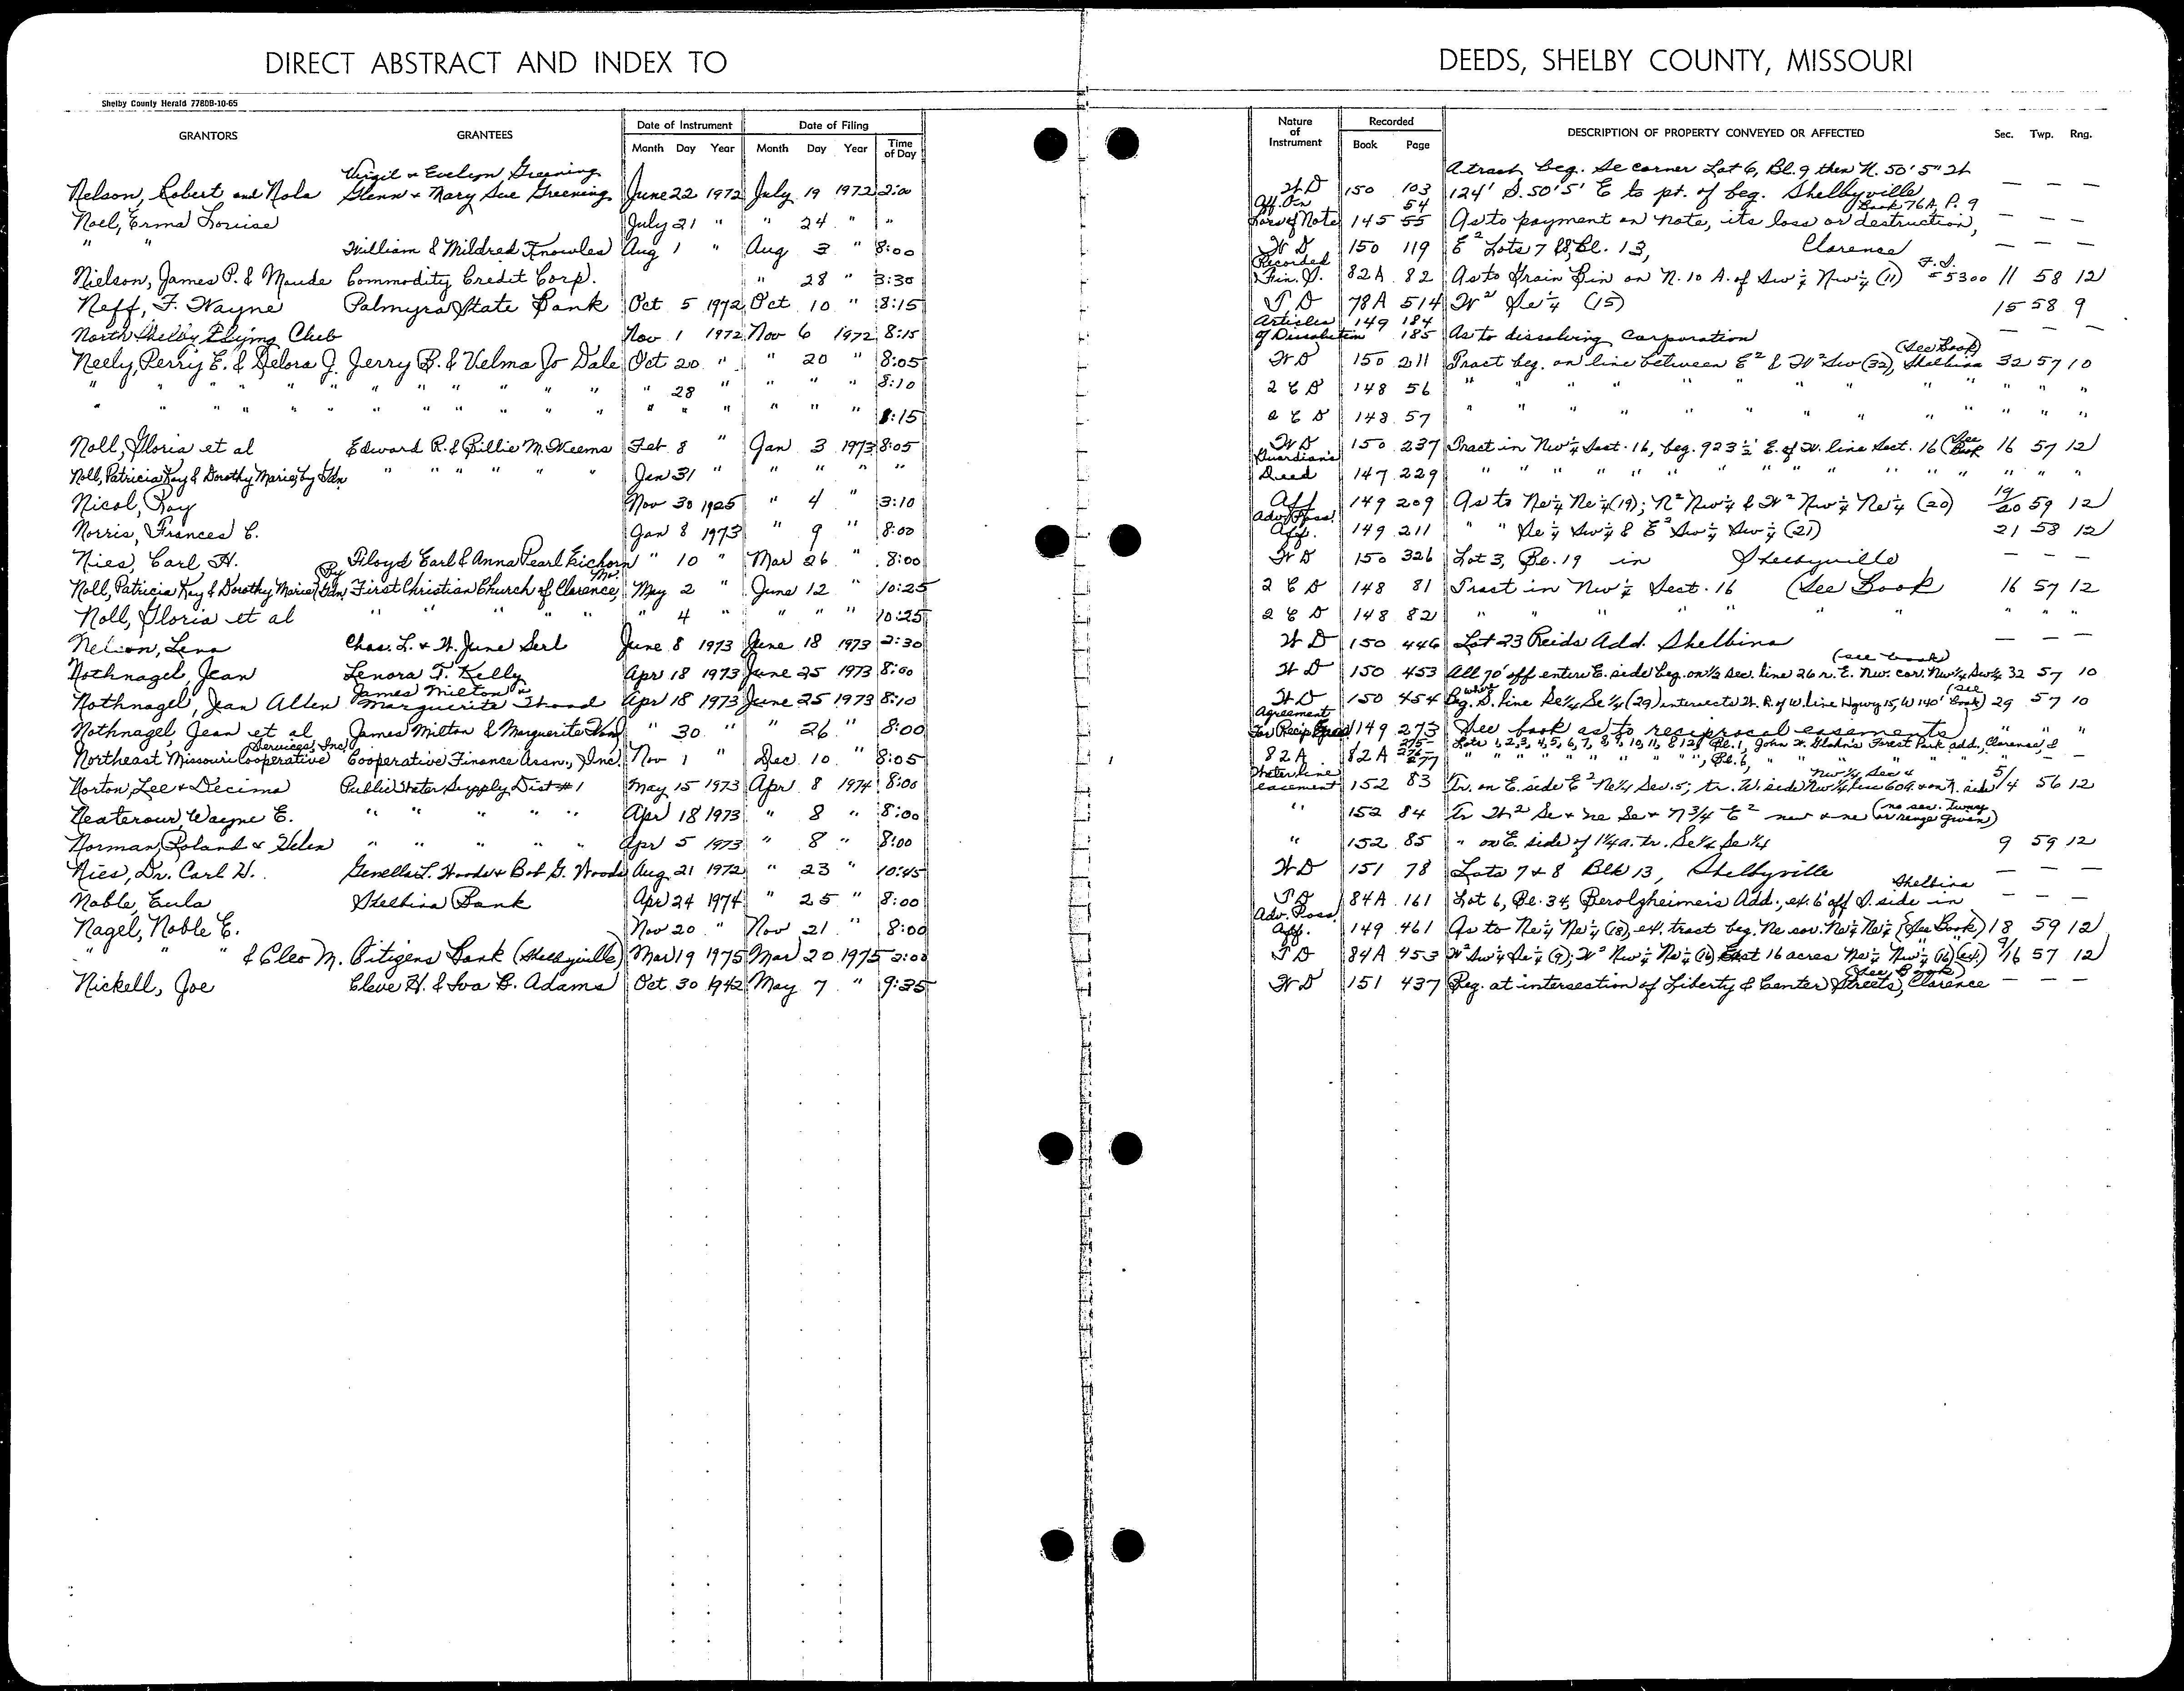 DIRECT ABSTRACT AND INDEX TO DEEDS, SHELBY COUNTY, MISSOURI
Shelby County Herald 7780B-10-65
GRANTORS GRANTEES Date of Instrument Date of Filing Nature of Instrument Recorded DESCRIPTION OF PROPERTY CONVEYED OR AFFECTED Sec. Twp. Rng.
Month Day Year Month Day Year Time of Day Book Page
Virgil & Evelyn Greening A tract beg. Se corner Lot 6, Bl. 9 then N. 50' 5" W
Nelson, Robert and Nola Glenn & Mary Sue Greening June 22 1972 July 19 1972 2:00 W D 150 103 124' S. 50' 5' E to pt. of beg. Shelbyville — — —
Noel, Erma Louise July 21 " " 24 " " Aff. On Loss of Note 145 54 55 As to payment on note, its loss or destruction, Book 76A, P. 9 — — —
" " William & Mildred Knowles Aug 1 " Aug 3 " 8:00 W D 150 119 E² Lots 7 & 8, Bl. 13, Clarence — — —
Nielson, James P. & Maude Commodity Credit Corp. " 28 " 3:30 Recorded Fin. S. 82A 82 As to Grain Bin on N. 10 A. of Sw ¼ Nw ¼ (11) F.S. #5300 11 58 12
Neff, F. Wayne Palmyra State Bank Oct 5 1972 Oct 10 " 8:15 T D 78A 514 W² Se ¼ (15) 15 58 9
North Shelby Flying Club Nov 1 1972 Nov 6 1972 8:15 Articles of Dissolution 149 184 185 As to dissolving Corporation — — —
Neely, Perry E. & Delora J. Jerry B. & Velma Jo Dale Oct 20 " " 20 " 8:05 W D 150 211 Tract beg. on line between E² & W² Sw (32), Shelbina (See Book) 32 57 10
" " " " " " " " " " 28 " " " " 8:10 2 C D 148 56 " " " " " " " " " " "
" " " " " " " " " " " " " " " " 8:15 2 C D 148 57 " " " " " " " " " " "
Noll, Gloria et al Edward R. & Billie M. Weems Feb 8 " Jan 3 1973 8:05 W D 150 237 Tract in Nw ¼ Sect. 16, beg. 923 ½' E. of W. line Sect. 16 (See Book 16 57 12
Noll, Patricia Kay & Dorothy Marie, by Gdn. " " " " " Jan 31 " " " " " Guardian's Deed 147 229 " " " " " " " " " " "
Nicol, Ray Nov 30 1925 " 4 " 3:10 Aff 149 209 As to Ne¼ Ne¼ (19); N² Nw¼ & W² Nw¼ Ne¼ (20) 19/20 59 12
Norris, Frances C. Jan 8 1973 " 9 " 8:00 Adv. Poss. Aff. 149 211 " " Se ¼ Sw ¼ & E² Sw ¼ Sw ¼ (21) 21 58 12
Nies, Carl H. Floyd Earl & Anna Pearl Eichorn " 10 " Mar 26 " 8:00 W D 150 326 Lot 3, Bl. 19 in Shelbyville — — —
Noll, Patricia Kay & Dorothy Marie (By Gdn. First Christian Church of Clarence, Mo. May 2 " June 12 " 10:25 2 C D 148 81 Tract in Nw ¼ Sect. 16 (See Book 16 57 12
Noll, Gloria et al " " " " 4 " " " " 10:25 2 C D 148 82 " " " " " " " " "
Nelson, Lena Chas. L. & W. June Serl June 8 1973 June 18 1973 2:30 W D 150 446 Lot 23 Reids Add. Shelbina — — —
Nothnagel, Jean Lenora F. Kelly Apr 18 1973 June 25 1973 8:00 W D 150 453 All 70' off entire E. side beg. on ½ Sec. line 26 r. E. Nw. cor. Nw¼ Sw¼ (see book) 32 57 10
Nothnagel, Jean Allen James Milton & Marguerite Apr 18 1973 June 25 1973 8:10 W D 150 454 Beg. where S. line Se¼ Se¼ (29) intersects W. R. of W. line Hgwy 15, W 140' (see book) 29 57 10
Nothnagel, Jean et al James Milton & Marguerite " 30 " " 26 " 8:00 Agreement For Recip. 149 273 See book as to reciprocal easements " " "
Northeast Missouri Cooperative Services, Inc. Cooperative Finance Assn., Inc. Nov 1 " Dec. 10 " 8:05 82A 82A 275- 276- 277 Lots 1, 2, 3, 4, 5, 6, 7, 8, 9, 10, 11, & 12, Bl. 1, John W. Glahn's Forest Park add., Clarence, &
" " " " " " " ", Bl. 6, " " " " " —
Norton, Lee & Decima Public Water Supply Dist #1 May 15 1973 Apr 8 1974 8:00 Water line easement 152 83 Tr. on E. side E² Ne¼ Sec. 5; tr. W. side Nw¼ Sec 4 5/4 56 12
Neaterour, Wayne E. " " " " Apr 18 1973 " 8 " 8:00 " 152 84 Tr W² Se & ne Se & n 3/4 E² nw & ne (no sec. twnsp or range given)
Norman, Roland & Helen " " " " Apr 5 1973 " 8 " 8:00 " 152 85 " on E. side of 1¼ a. tr. Se¼ Se¼ 9 59 12
Nies, Dr. Carl H. Genella L. Woods & Bob G. Woods Aug 21 1972 " 23 " 10:45 W D 151 78 Lots 7 & 8 Blk 13, Shelbyville — — —
Noble, Eula Shelbina Bank Apr 24 1974 " 25 " 8:00 T D 84A 161 Lot 6, Bl. 34, Berolzheimer's Add., ex. 6' off S. side in Shelbina — — —
Nagel, Noble E. Nov 20 " Nov 21 " 8:00 Adv. Poss. Aff. 149 461 As to Ne¼ Ne¼ (18), ex. tract beg. Ne cor. Ne¼ Ne¼ (See Book) 18 59 12
" " " & Cleo M. Citizens Bank (Shelbyville) Mar 19 1975 Mar 20 1975 2:00 T D 84A 453 W² Sw¼ Se¼ (9); W² Nw¼ Ne¼ (16) East 16 acres Ne¼ Nw¼ (16) (ex.) 9/16 57 12
Nickell, Joe Cleve H. & Iva B. Adams Oct. 30 1942 May 7 " 9:35 W D 151 437 Beg. at intersection of Liberty & Center Streets, Clarence (See Book) — — —